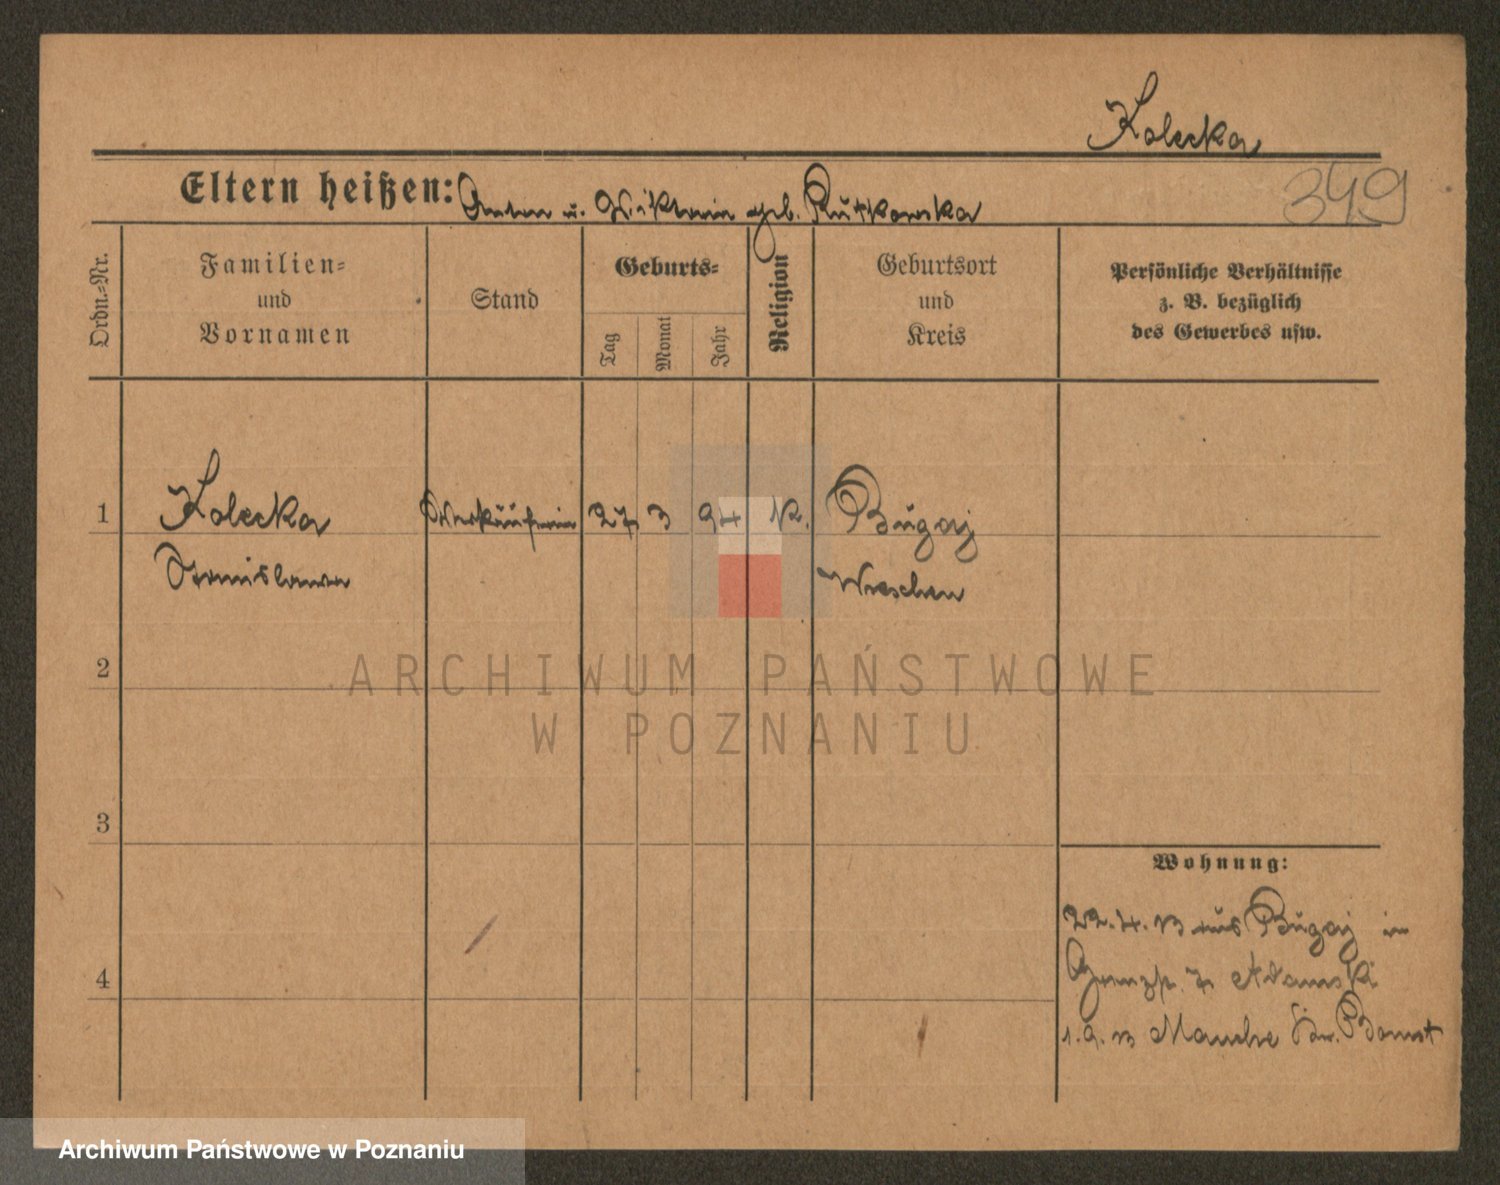 Kolecka
349
Eltern heißen: Anton u. Wiktoria geb. Rutkowska
Ordn.=Nr.
Familien=
und
Vornamen
Stand
Geburts=
Tag
Monat
Jahr
Religion
Geburtsort
und
Kreis
Persönliche Verhältnisse
z. B. bezüglich
des Gewerbes usw.
1 Kolecka Verkäuferin 27 3 94 k. Bugaj
Stanislawa Wreschen
2
3
4
Wohnung:
22.4.13 aus Bugaj in
7 Adamski
1.9.13 Mauche Kr. Bomst
ARCHIWUM PAŃSTWOWE
W POZNANIU
Archiwum Państwowe w Poznaniu